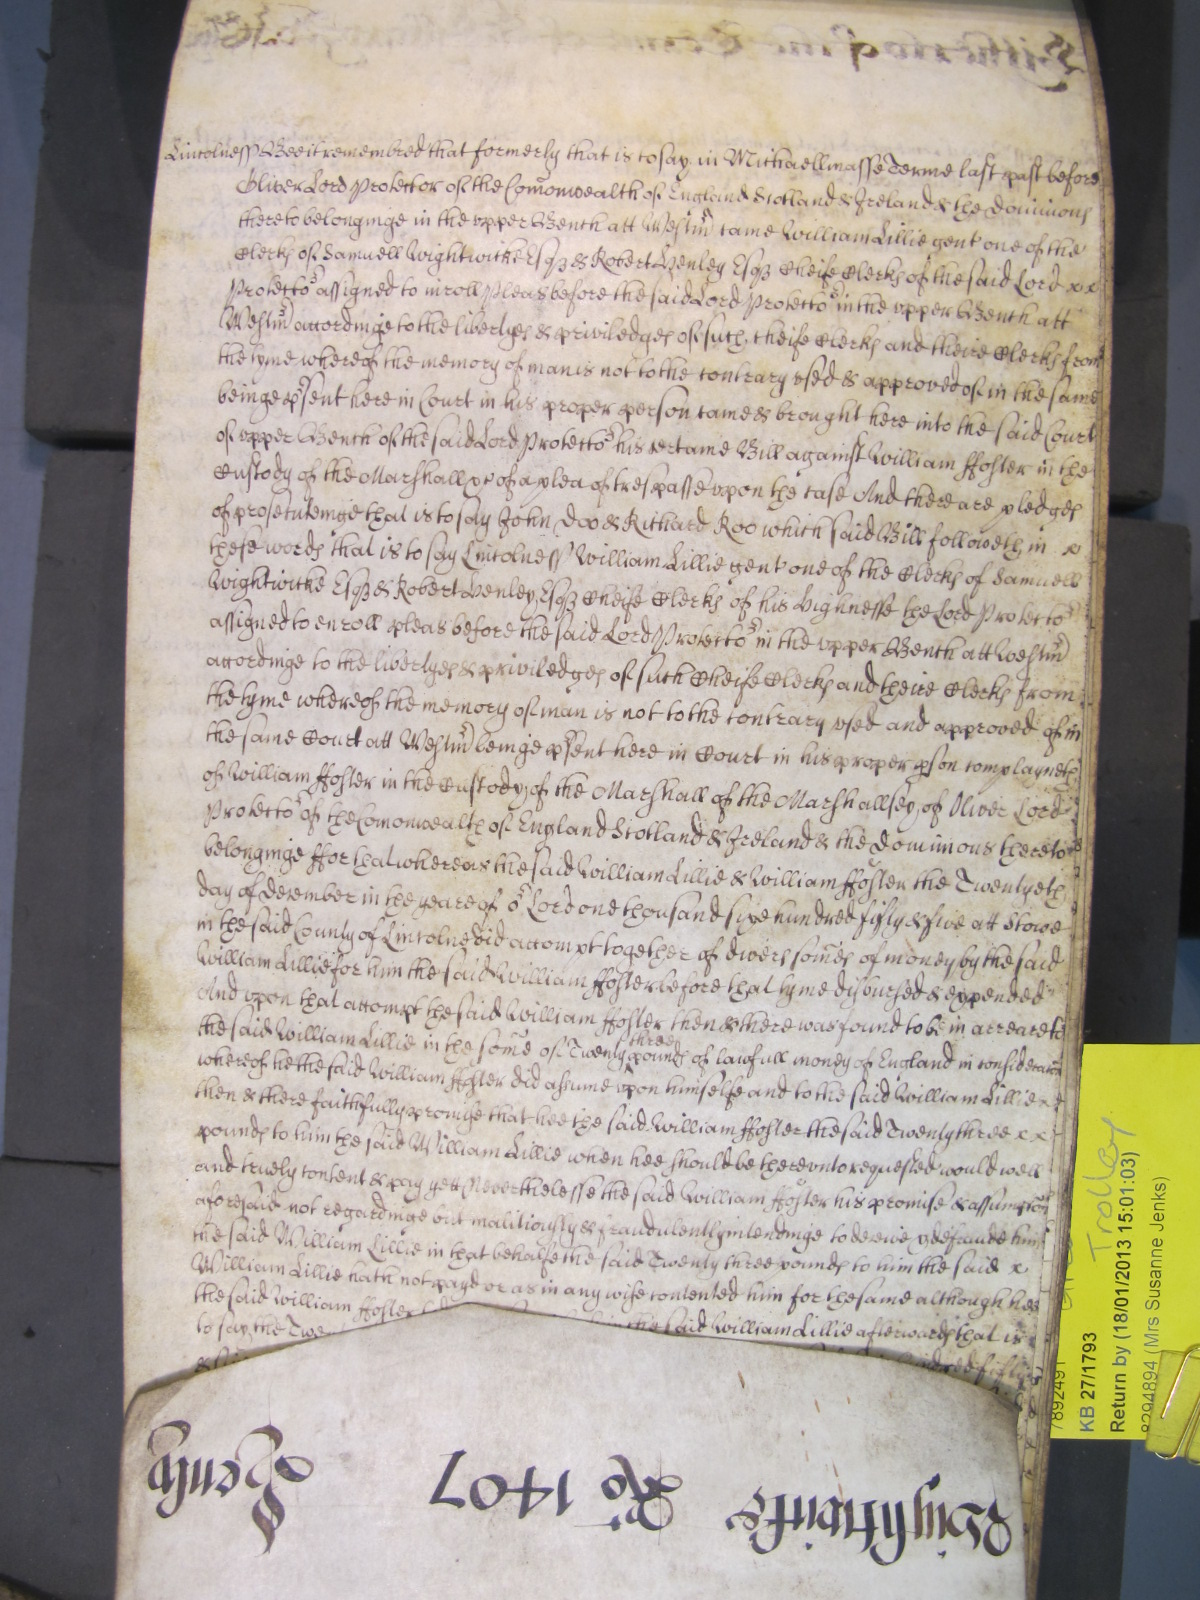 Lincolness Bee it remembred that formerly that is to say in Michaellmasse Terme last past before
Oliver Lord Protector of the Com̄onwealth of England Scotland & Ireland & the dominions
thereto belonginge in the upper Bench att Westm̄ came William Lillie gent one of the
Clerks of Samuell Wightwicke Esqȝ & Robert Henley Esqȝ Cheife Clerks of the said Lord x x
Protectoʳ assigned to inroll Pleas before the said Lord Protectoʳ in the upper Bench att
Westm̄ accordinge to the libertyes & priviledges of such cheife Clerks and theire Clerks from
the tyme whereof the memory of man is not to the contrary vsed & approved of in the same
beinge p̱sent here in Court in his proper person came & brought here into the said Court
of vpper Bench of the said Lord Protectoʳ his certaine Bill against William ffoster in the
Custody of the Marshall &c of a plea of trespasse vpon the case And there are pledges
of prosecuteinge that is to say John Doo & Richard Roo which said Bill followeth in x
these words that is to say Lincolness William Lillie gent one of the Clerks of Samuell
Wightwicke Esqȝ & Robert Henley Esqȝ Cheife Clerks of his Highnesse the Lord Protectoʳ
assigned to enroll pleas before the said Lord Protectoʳ in the vpper Bench att Westm̄
accordinge to the libertyes & priviledges of such Cheife Clerks and theire Clerks from
the tyme whereof the memory of man is not to the contrary vsed and approved of in
the same Court att Westm̄ beinge p̱sent here in Court in his proper p̱son complayneth
of William ffoster in the Custody of the Marshall of the Marshallsey of Oliver Lord
Protectoʳ of the Com̄onwealth of England Scotland & Ireland & the dominions thereto
belonginge ffor that whereas the said William Lillie & William ffoster the Twentyeth
day of december in the yeare of oʳ Lord one thousand sixe hundred fifty & five att Stowe
in the said County of Lincolne did accompt together of divers som̄es of money by the said
William Lillie for him the said William ffoster before that tyme disbursed & expended
And vpon that accompt the said William ffoster then & there was found to be in arreare to
the said William Lillie in the som̄e of Twenty three pounds of lawfull money of England in consideracōn
whereof he the said William ffoster did assume vpon himselfe and to the said William Lillie x x
then & there faithfully promise that hee the said William ffoster the said Twenty three x x
pounds to him the said William Lillie when hee should be therevnto requested would well
and truely content & pay yett Neverthelesse the said William ffoster his promise & assumpcōn
aforesaid not regardinge but malitiously & fraudulently intendinge to deceive & defraude him
the said William Lillie in that behalfe the said Twenty three pounds to him the said x
William Lillie hath not payd or as in any wise contented him for the same although hee
the said William ffoster the said William Lillie afterwards that is
to say the Twe
Wightwicke Ro 1407 Henley
KB 27/1793 Trolley
Return by (18/01/2013 15:01:03)
8294894 (Mrs Susanne Jenks)